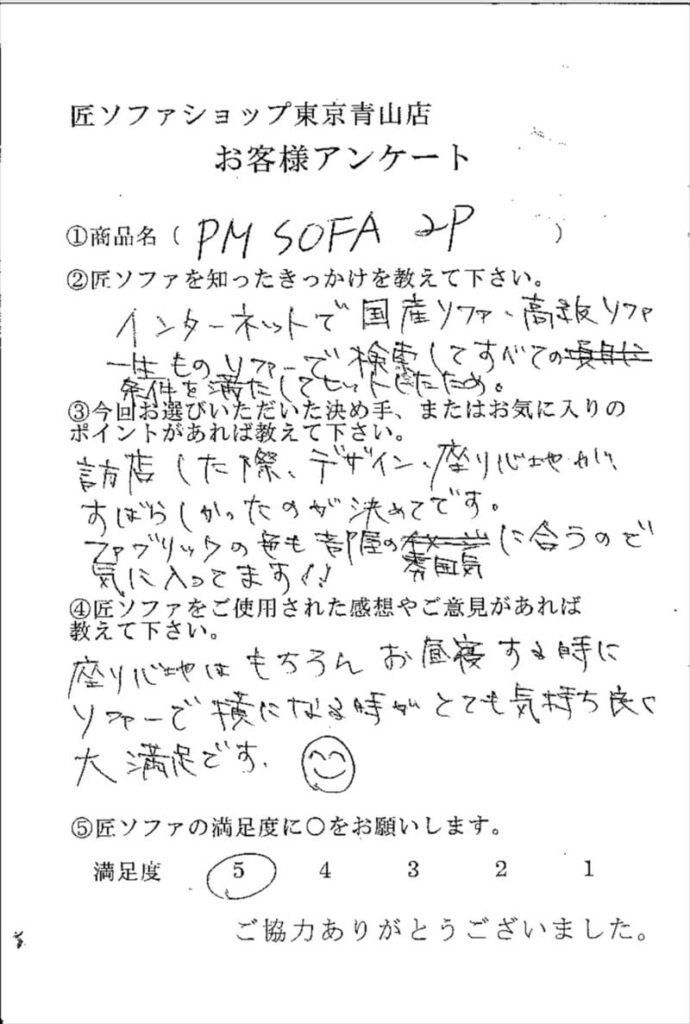 匠ソファショップ東京青山店
お客様アンケート
①商品名（ PM SOFA 2P ）
②匠ソファを知ったきっかけを教えて下さい。
インターネットで国産ソファ、高級ソファ
一生ものソファーで検索してすべての
条件を満たしてヒットしたため。
③今回お選びいただいた決め手、またはお気に入りの
ポイントがあれば教えて下さい。
訪店した際、デザイン、座り心地が、
すばらしかったのが決めてです。
ファブリックの色も部屋の雰囲気に合うので
気に入ってます!!
④匠ソファをご使用された感想やご意見があれば
教えて下さい。
座り心地はもちろんお昼寝する時に
ソファーで横になる時がとても気持ち良く
大満足です。
⑤匠ソファの満足度に〇をお願いします。
満足度 5 4 3 2 1
ご協力ありがとうございました。